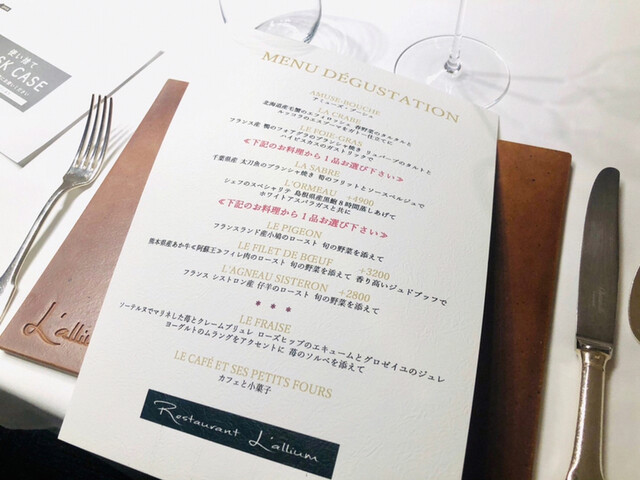 使い捨て
SK CASE
MENU DÉGUSTATION
AMUSE-BOUCHE
アミューズ・ブーシュ
LA CRABE
北海道産毛蟹のエフィロッシェ 春野菜のタルタルと
ルッコラのエスプーマをガトー仕立てに
LE FOIE-GRAS
フランス産 鴨のフォアグラのプランシャ焼き リュバーブのタルトと
ハイビスカスのガストリックで
≪下記のお料理から1品お選び下さい≫
LA SABRE
千葉県産 太刀魚のプランシャ焼き 筍のフリットとソースベルジュで
L'ORMEAU +4900
シェフのスペシャリテ 島根県産黒鮑8時間蒸しあげて
ホワイトアスパラガスと共に
≪下記のお料理から1品お選び下さい≫
LE PIGEON
フランスランド産小鳩のロースト 旬の野菜を添えて
LE FILET DE BŒUF +3200
熊本県産あか牛≪阿蘇王≫フィレ肉のロースト 旬の野菜を添えて 香り高いジュドブッフで
L'AGNEAU SISTERON +2800
フランス シストロン産 仔羊のロースト 旬の野菜を添えて
* * *
LE FRAISE
ソーテルヌでマリネした苺とクレームブリュレ ローズヒップのエキュームとグロゼイユのジュレ
ヨーグルトのムラングをアクセントに 苺のソルベを添えて
LE CAFÉ ET SES PETITS FOURS
カフェと小菓子
Restaurant L'allium
L'allium